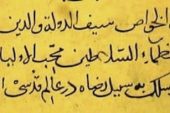 الخواص سيف الدولة والدين
السلاطين محب الاوليا
سبيل رضاه در عالم قدسی